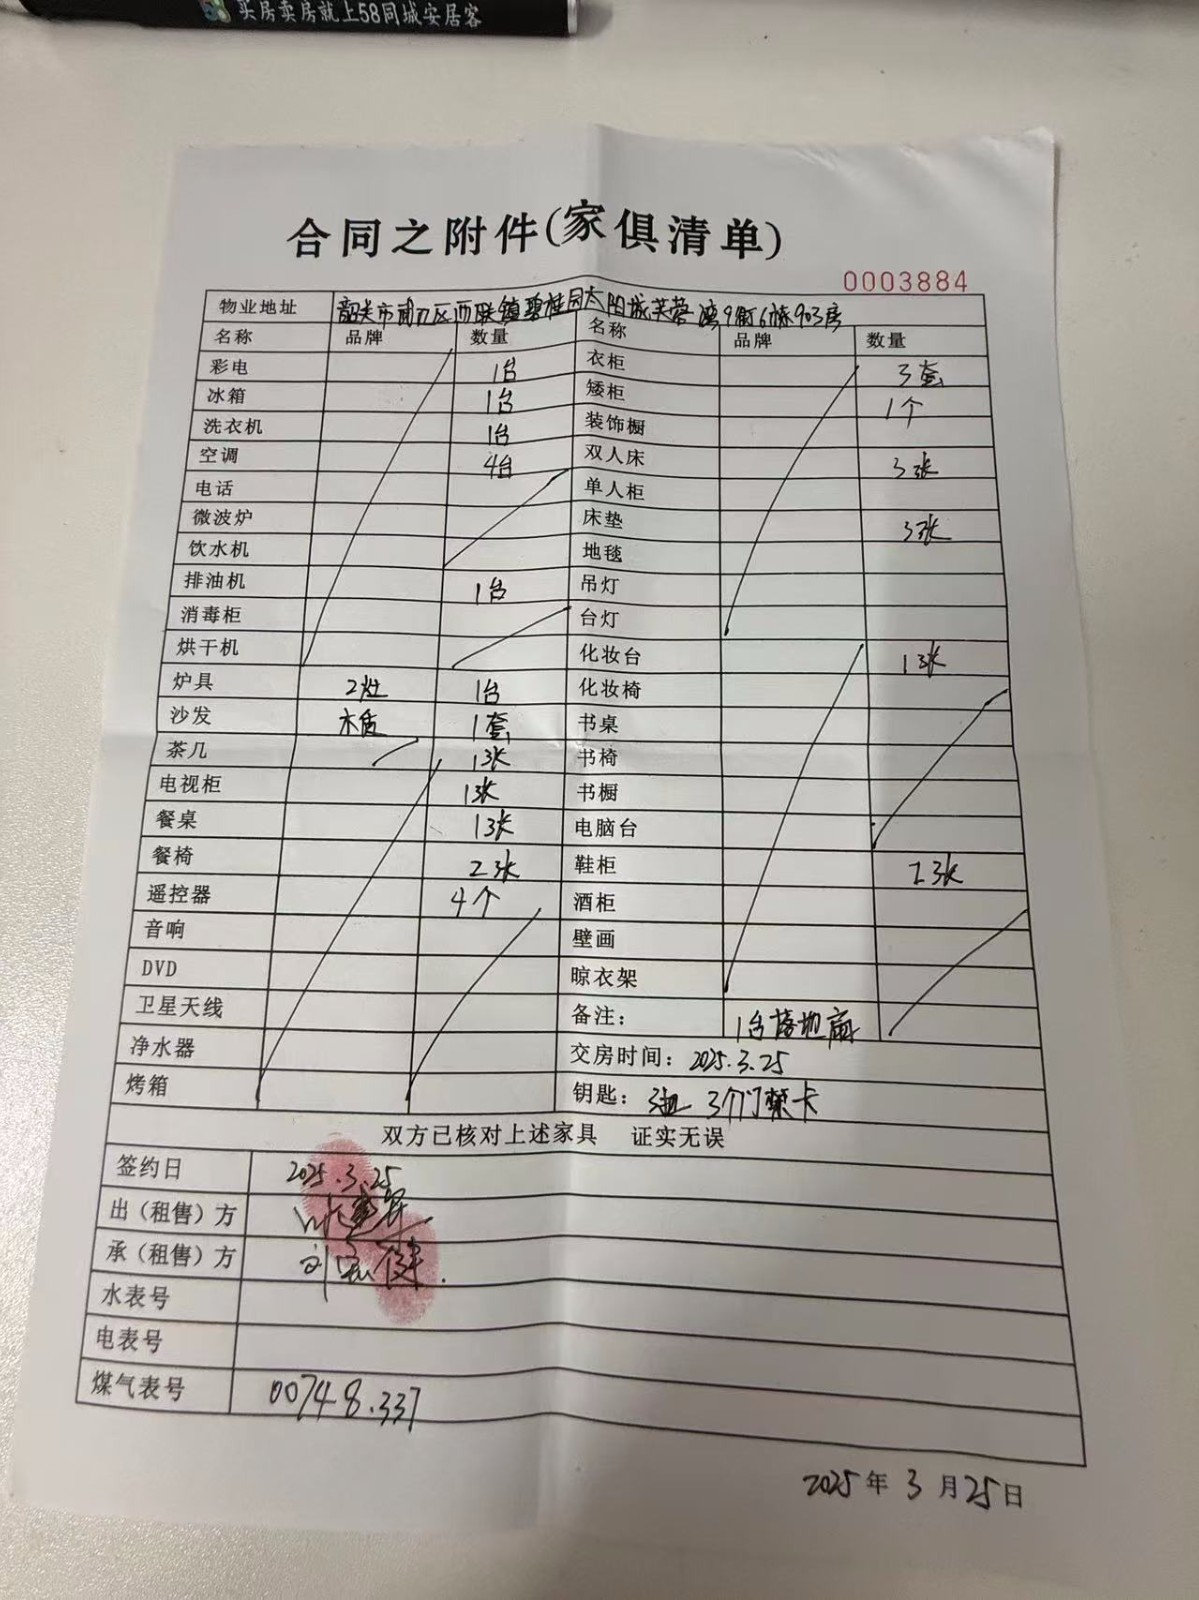 买房卖房就上58同城安居客
合同之附件(家俱清单)
0003884
物业地址 韶关市武江区西联镇碧桂园太阳城芙蓉湾9街6栋903房
名称 品牌 数量 名称 品牌 数量
彩电 1台 衣柜 3套
冰箱 1台 矮柜 1个
洗衣机 1台 装饰橱
空调 4台 双人床 3张
电话 单人柜
微波炉 床垫 3张
饮水机 地毯
排油机 1台 吊灯
消毒柜 台灯
烘干机 化妆台 1张
炉具 2灶 1台 化妆椅
沙发 木质 1套 书桌
茶几 1张 书椅
电视柜 1张 书橱
餐桌 1张 电脑台
餐椅 2张 鞋柜 2张
遥控器 4个 酒柜
音响 壁画
DVD 晾衣架
卫星天线 备注： 1台落地扇
净水器 交房时间：2025.3.25
烤箱 钥匙： 3个门禁卡
双方已核对上述家具 证实无误
签约日 2025.3.25
出（租售）方
承（租售）方
水表号
电表号
煤气表号 00748.337
2025年3月25日